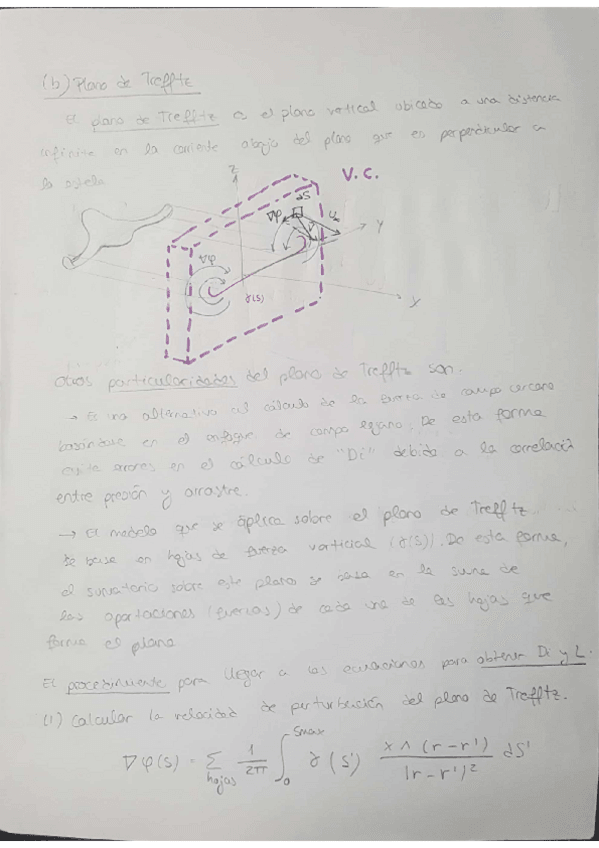 (b) Plano de Trefftz
El plano de Trefftz es el plano vertical ubicado a una distancia
infinita en la corriente abajo del plano que es perpendicular a
la estela
V.C.
Z
dS
∇φ
Y
∇φ
γ(s)
X
Otras particularidades del plano de Trefftz son.
→ Es una alternativa al cálculo de la fuerza de campo cercano
basándose en el enfoque de campo lejano. De esta forma
evita errores en el cálculo de "Di" debido a la correlación
entre presión y arrastre.
→ El modelo que se aplica sobre el plano de Trefftz
se basa en hojas de fuerza vorticial (γ(s)). De esta forma,
el sumatorio sobre este plano se basa en la suma de
las aportaciones (fuerzas) de cada una de las hojas que
forma el plano
El procedimiento para llegar a las ecuaciones para obtener Di y L.
(1) Calcular la velocidad de perturbación del plano de Trefftz.
∇φ(s) = Σ hojas 1/2π ∫₀^Smax γ(s') x∧(r-r')/|r-r'|² ds'